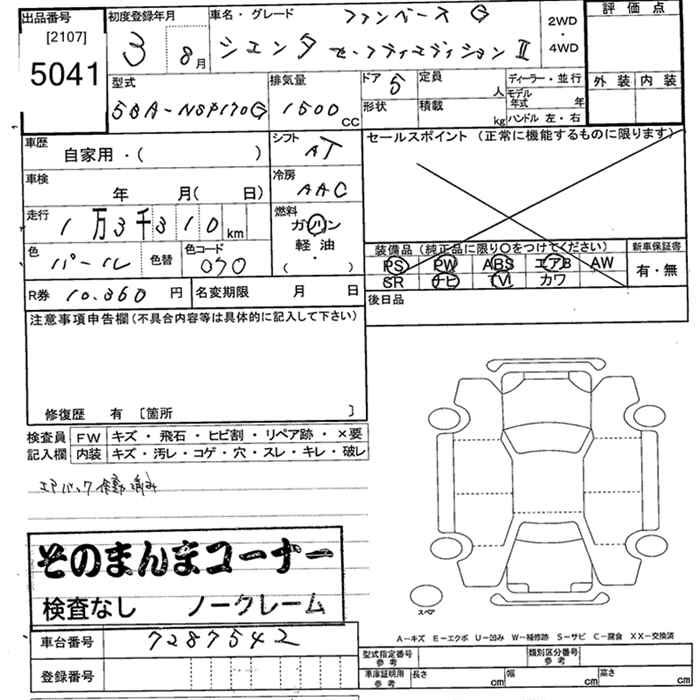 出品番号 初度登録年月 車名・グレード ファンベース G 2WD ・ 4WD 評価点
[2107] 5041 3 8月 シエンタ セーフティエディションⅡ
型式 排気量 ドア 5 定員 人 ディーラー・並行 外装 内装
5BA-NSP170G 1500cc 形状 積載 kg モデル年式 年 ハンドル 左・右
車歴 自家用・( ) シフト AT セールスポイント (正常に機能するものに限ります)
車検 年 月( 日) 冷房 AAC
走行 1万3千310km 燃料 ガソリン 軽油 ( ・ )
装備品 (純正品に限り○をつけてください) 新車保証書
色 パール 色替 色コード 070 PS PW ABS エアB AW 有・無
SR ナビ TV カワ
R券 10,360円 名変期限 月 日 後日品
注意事項申告欄(不具合内容等は具体的に記入して下さい)
修復歴 有 [箇所 ]
検査員 FW キズ・飛石・ヒビ割・リペア跡・×要
記入欄 内装 キズ・汚レ・コゲ・穴・スレ・キレ・破レ
エアバック 作動 済み
そのまんまコーナー
検査なし ノークレーム
スペア
A-キズ E-エクボ U-凹み W-補修跡 S-サビ C-腐食 XX-交換済
車台番号 7287542
型式指定番号 参考 類別区分番号 参考
登録番号 車庫証明用 参考 長さ cm 幅 cm 高さ cm